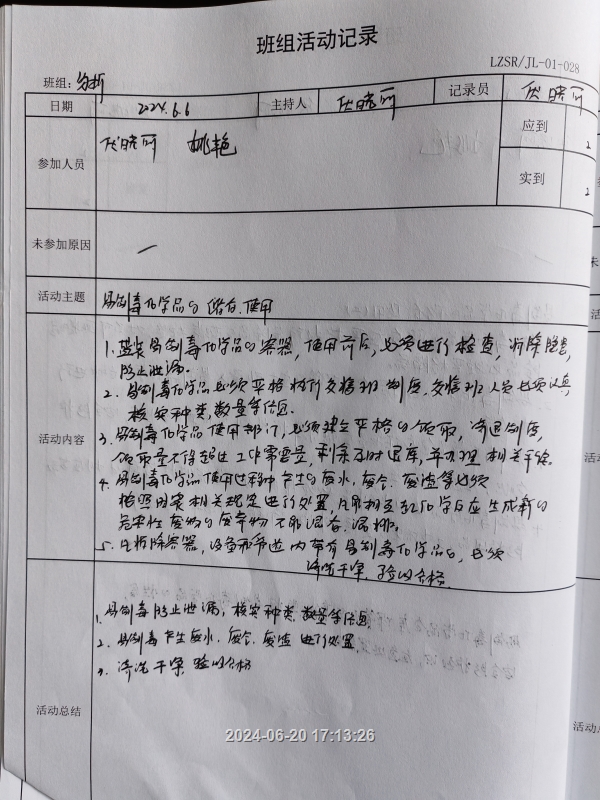 班组活动记录
LZSR/JL-01-028
班组：分析
日期 2024.6.6 主持人 伏晓丽 记录员 伏晓丽
参加人员 伏晓丽 姚艳 应到 2
实到 2
未参加原因 —
活动主题 易制毒化学品的储存、使用
活动内容
1. 盛装易制毒化学品的容器，使用前后，必须进行检查，消除隐患，
防止泄漏。
2. 易制毒化学品必须严格执行交接班制度，交接班人员必须认真
核实种类、数量等信息。
3. 易制毒化学品使用部门，必须建立严格的领取、清退制度，
领取量不得超过工作需要量，剩余及时退库，并办理相关手续。
4. 易制毒化学品使用过程中产生的废水、废气、废渣等必须
按照国家相关规定进行处置，凡能相互引起化学反应生成新的
危害性废物的废弃物不能混存、混排。
5. 凡拆除容器，设备和管道内带有易制毒化学品的，必须
清洗干净，验收合格。
活动总结
1. 易制毒防止泄漏，核实种类、数量等信息
2. 易制毒产生废水、废气、废渣进行处置
3. 清洗干净 验收合格
2024-06-20 17:13:26